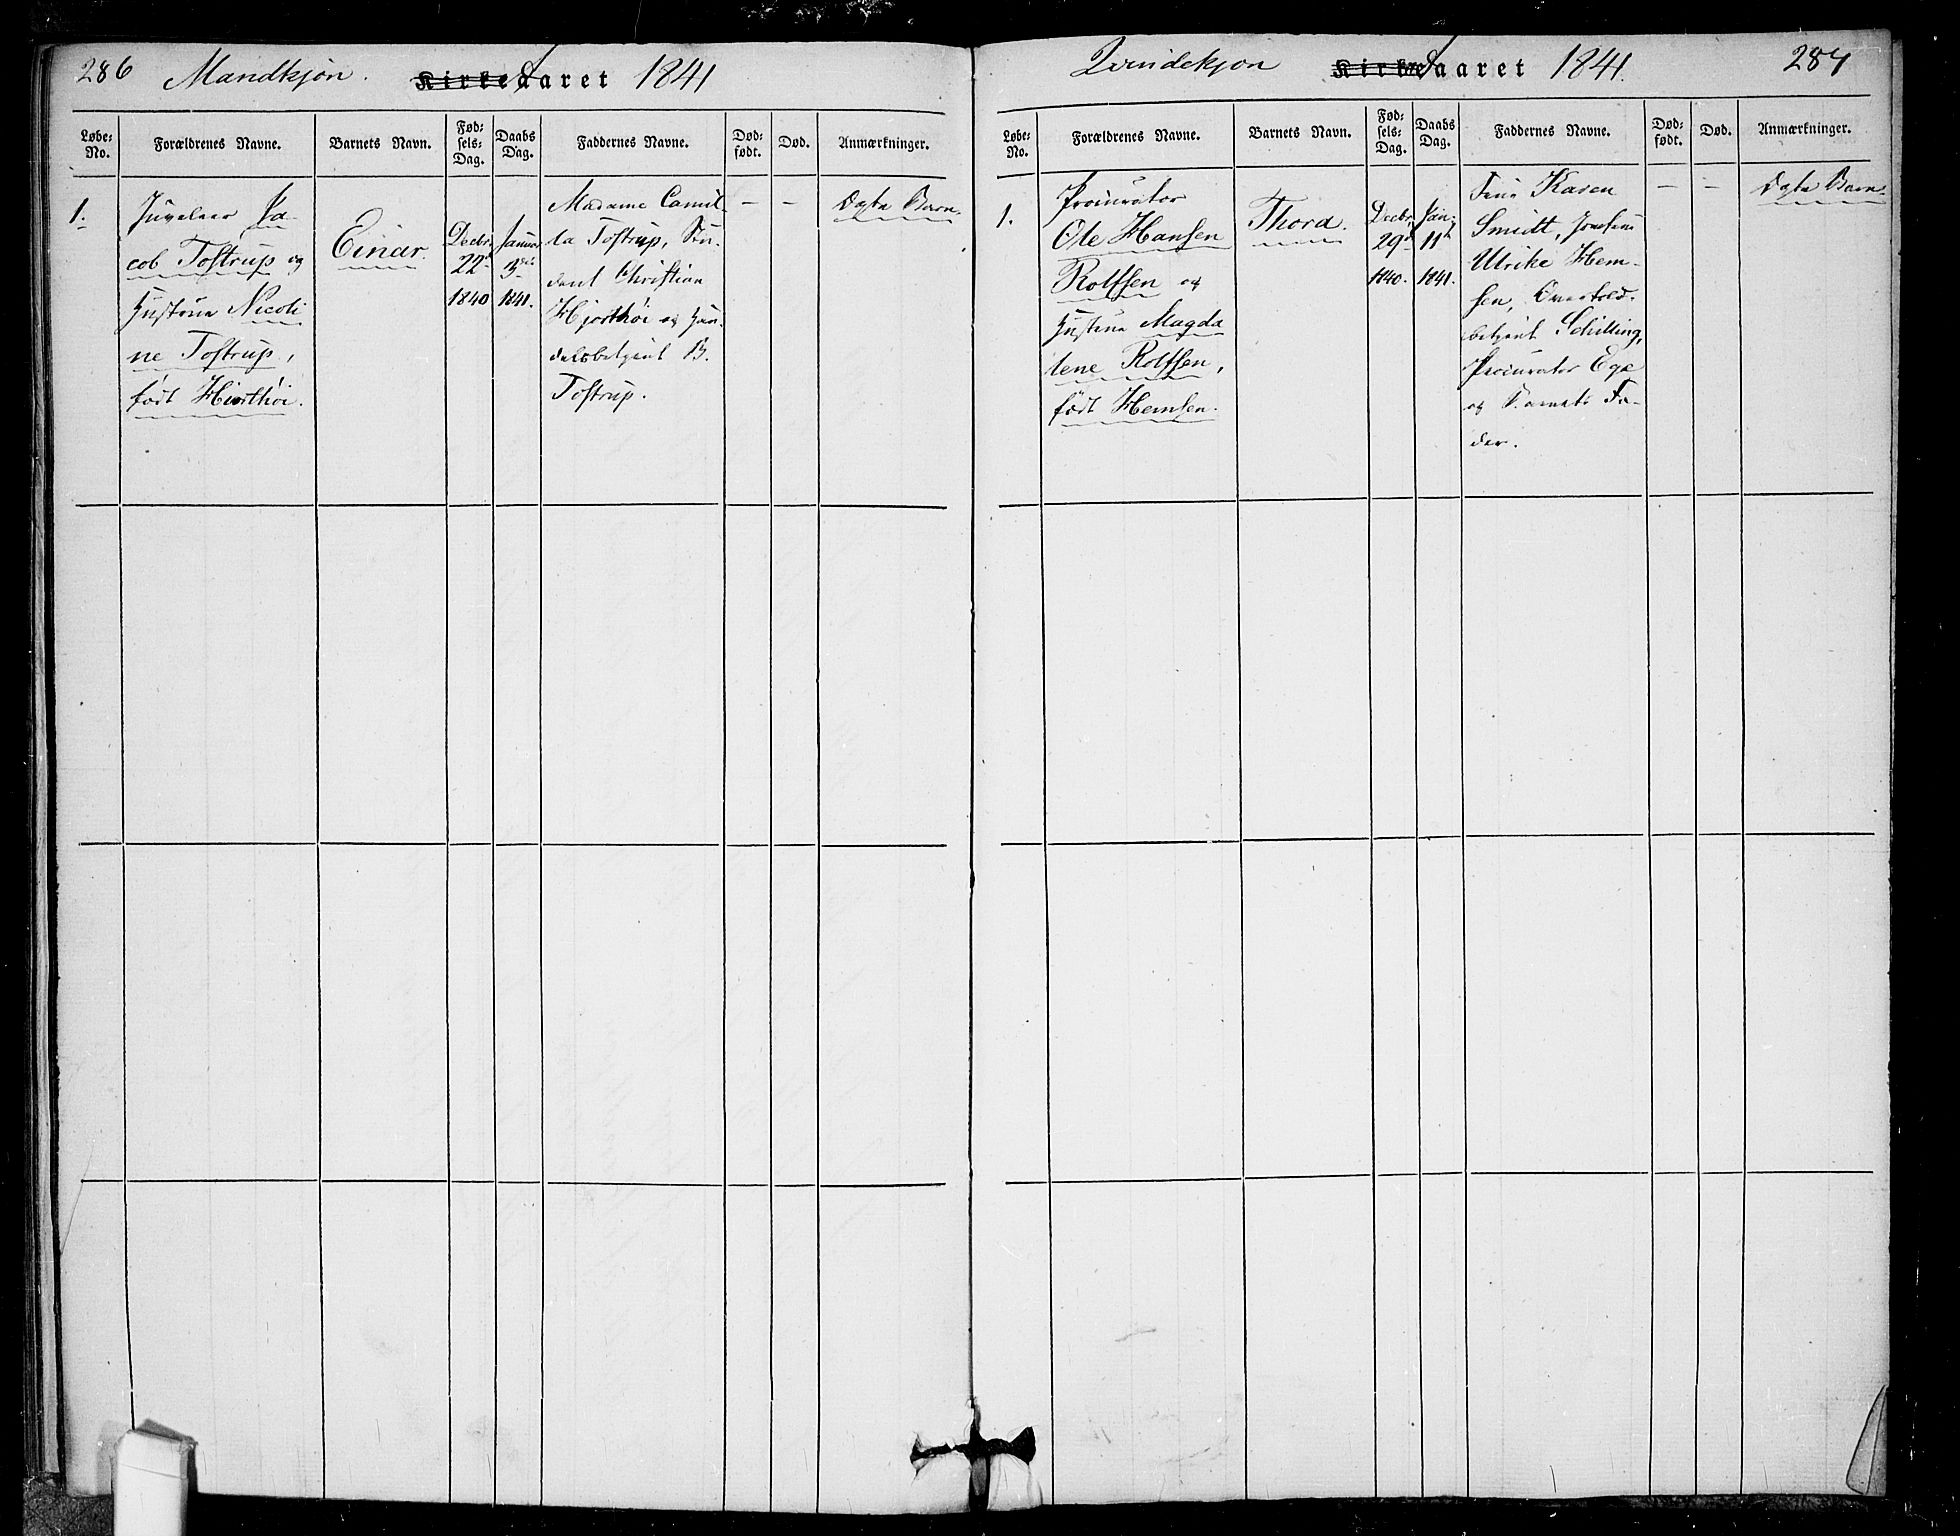 286 Mandkjøn. Kirkeaaret 1841
Løbe-No. Forældrenes Navne. Barnets Navn. Fødsels-Dag. Daabs Dag. Faddernes Navne. Dødfødt. Død. Anmærkninger.
1.
Juveleer Ja-
cob Tostrup og
Hustrue Nicoli
ne Tostrup,
født Hiorthøi.
Einar.
Decbr
22d
1840
Januar
3die
1841.
Madame Camil-
la Tostrup, Stu-
dent Christian
Hjorthøi og Han-
delsbetjent B.
Tostrup.
— —
Ægte Barn.
Qvindekjøn Kirkeaaret 1841. 287
Løbe-No. Forældrenes Navne. Barnets Navn. Fødsels-Dag. Daabs Dag. Faddernes Navne. Dødfødt. Død. Anmærkninger.
1.
Procurator
Ole Hansen
Rolfsen og
Hustrue Magda
lene Rolfsen,
født Hemsen.
Thora.
Decbr
29d
1840.
Jan.
11te
1841.
Frue Karen
Smidt, Jomfrue
Ulrike Hem-
sen, Overtold-
betjent Schilling,
Procurator Ege
og Barnets Fa-
der.
— —
Ægte Barn.